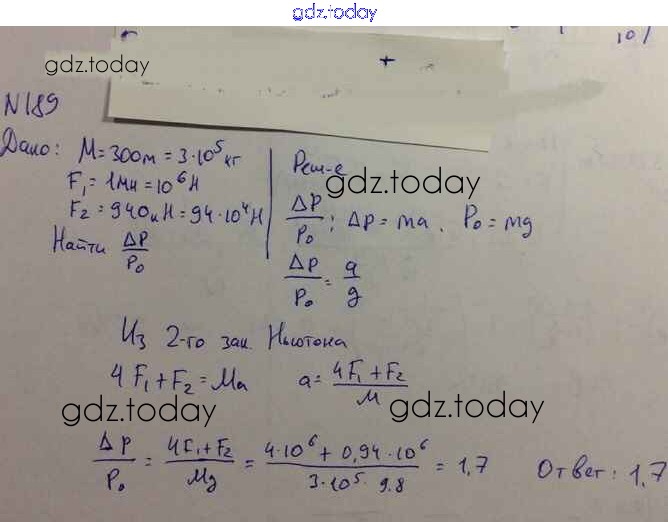 gdz.today
10/
gdz.today
+
N189
Дано: M=300т=3·10⁵кг
F₁=1мн=10⁶Н
F₂=940кН=94·10⁴Н
Найти ΔP/P₀
Реш-е
gdz.today
ΔP/P₀; ΔP=ma. P₀=mg
ΔP/P₀=a/g
Из 2-го зак. Ньютона
4F₁+F₂=Ma a=(4F₁+F₂)/M
gdz.today gdz.today
ΔP/P₀=(4F₁+F₂)/Mg=(4·10⁶+0,94·10⁶)/(3·10⁵·9.8)=1,7 Ответ: 1,7